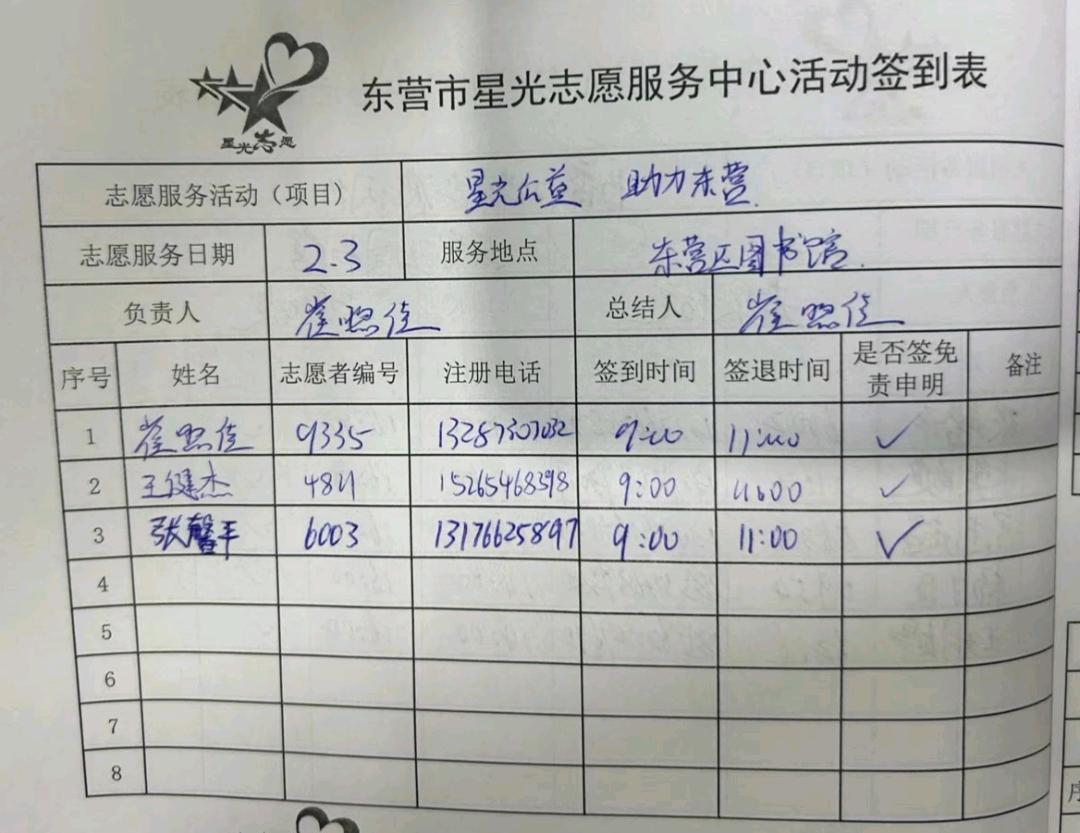 星光志愿
东营市星光志愿服务中心活动签到表
志愿服务活动（项目） 星光公益 助力东营
志愿服务日期 2.3 服务地点 东营区图书馆
负责人 崔照佳 总结人 崔照佳
序号 姓名 志愿者编号 注册电话 签到时间 签退时间 是否签免责申明 备注
1 崔照佳 9335 13287307032 9:00 11:00 ✓
2 王健杰 4811 15265468398 9:00 11:00 ✓
3 张馨 6003 13176625897 9:00 11:00 ✓
4
5
6
7
8